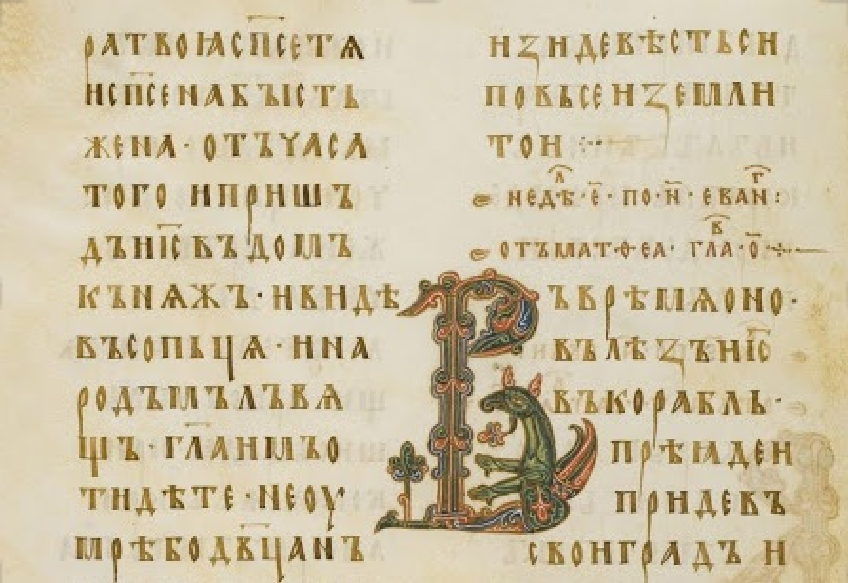 ратвоꙗсп҃сетѧ
исп҃сенабꙑсть
жена·отъчаса
того ипришь
дъні҃съвъдомъ
кънѧжь·ивидѣ
въсопьцѧ·ина
родъмълъвѧ
щь·гл҃анмъо
тидѣте·неоу
мрѣбодв҃цанъ
изидевѣстьси
повьсеиземли
тои
недѣⷧ·е҃·по·н҃·еванⷢ:
отъматѳеа·глаⷡ·о҃
ъврѣмѧоно·
вълѣзъні҃с
въкорабль·
прѣиден
придевъ
своиградъ и